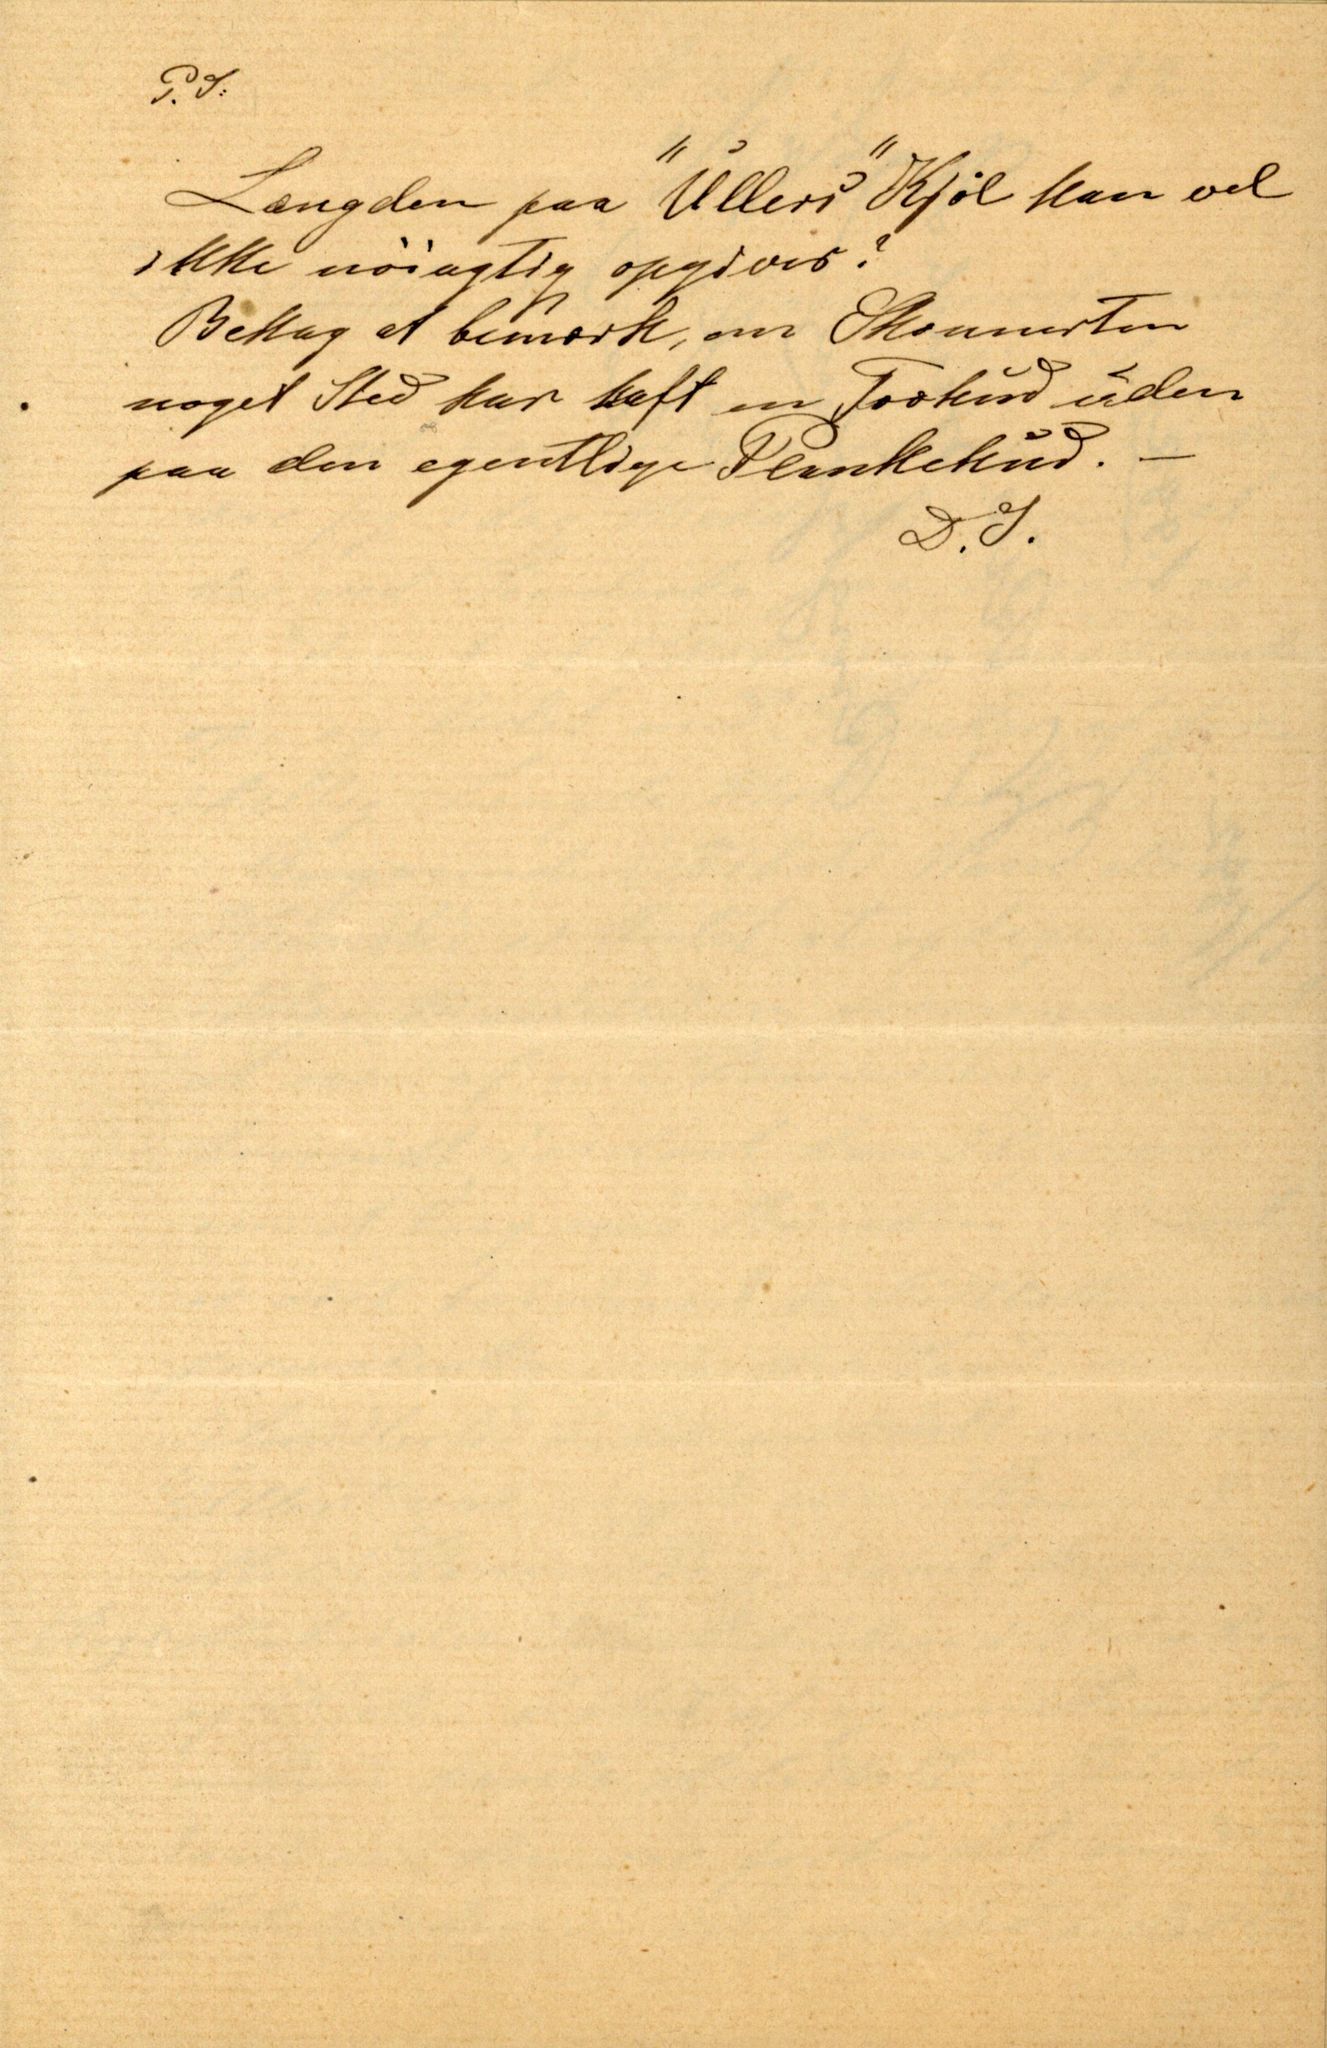 P. S:
Længden paa "Ullers" Kjøl kan vel
ikke nöiagtig opgives?
Behag at bemærk, om Skonnerten
noget Sted har haft en Forhud uden
paa den egentlige Plankehud. —
D. S.